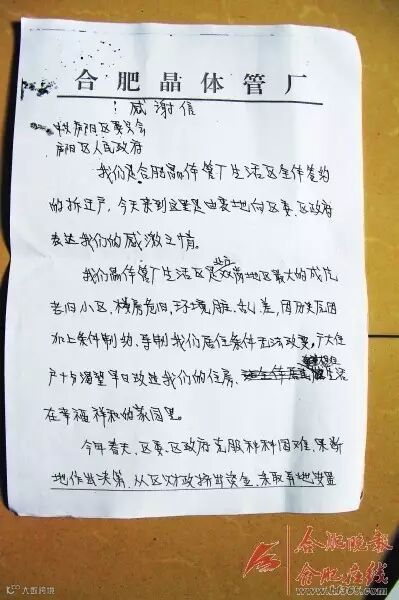 合肥晶体管厂
感谢信
庐阳区委员会
庐阳区人民政府
我们是合肥晶体管厂生活区全体签约
的拆迁户，今天来到这里是由衷地向区委、区政府
表达我们的感激之情。
我们晶体管厂生活区是双岗地区最大的成片
老旧小区，楼房危旧，环境脏、乱、差，因历史原因
加上条件制约，导制我们居住条件无法改变，广大住
户十分渴望早日改造我们的住房、生活
在幸福祥和的家园里。
今年春天，区委、区政府克服种种困难，果断
地作出决策，从区财政挤出资金，采取异地安置
合肥晚报
合肥在线
www.hf365.com
大皖跨境